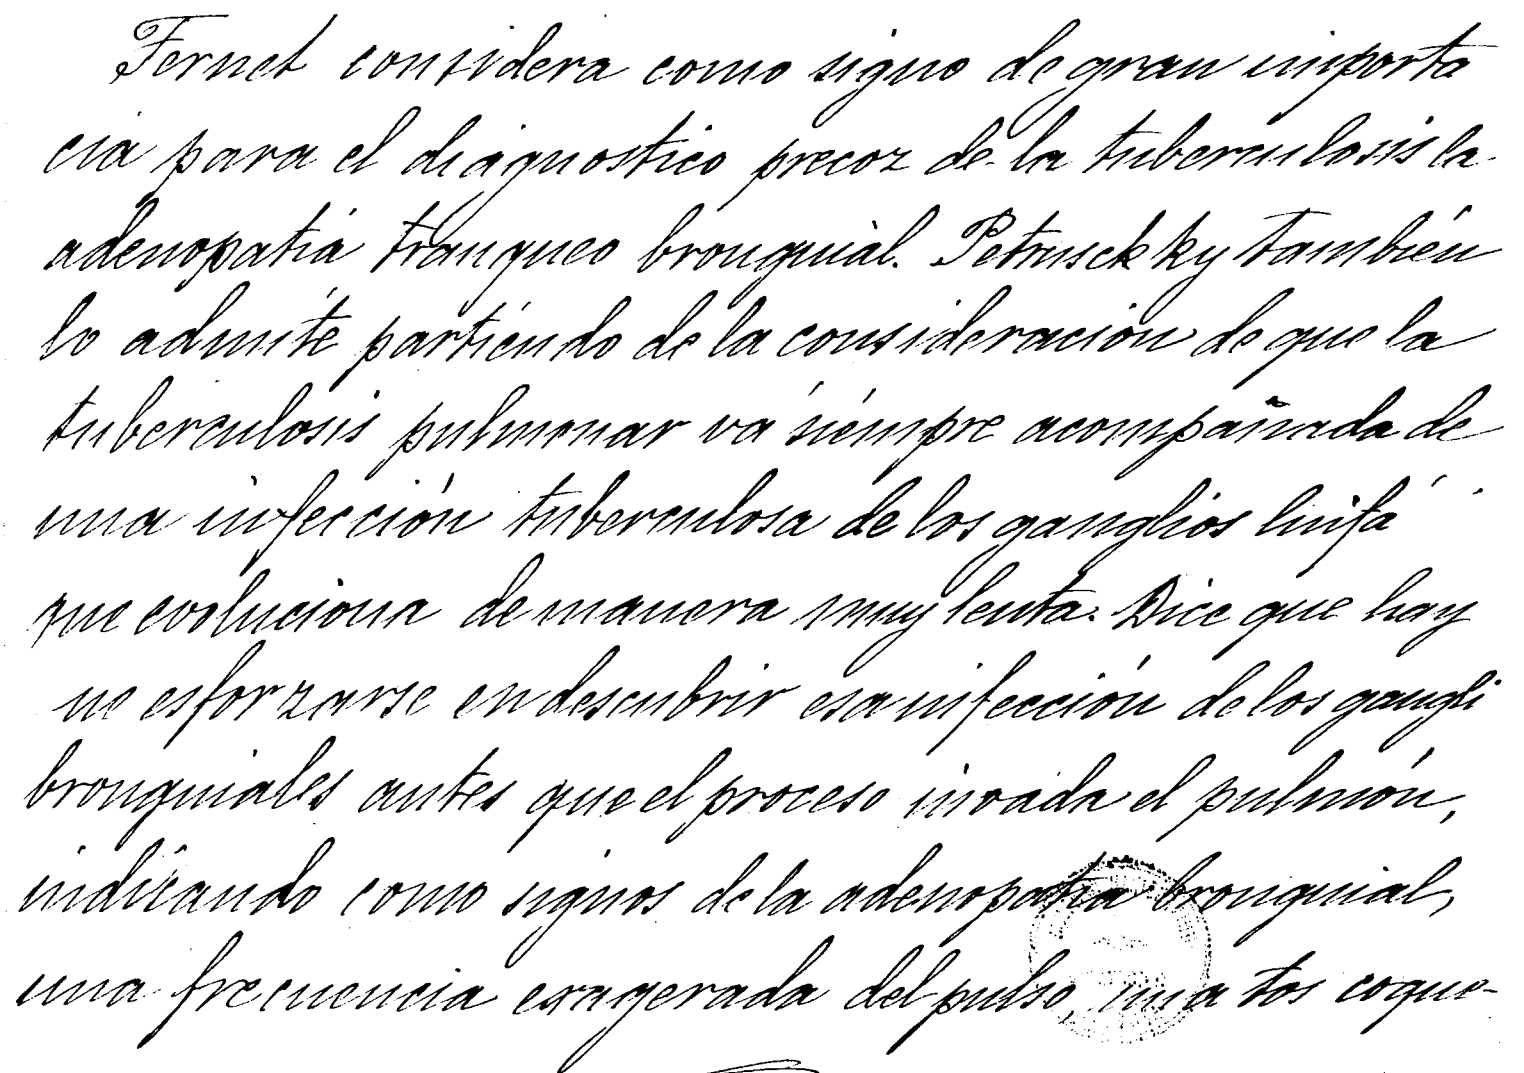 Fernet considera como signo de gran importa
cia para el diagnostico precoz de la tuberculosis la
adenopatia traqueo bronquial. Petrusckky también
lo admite partiendo de la consideración de que la
tuberculosis pulmonar va siempre acompañada de
una infección tuberculosa de los ganglios linfá
que evoluciona de manera muy lenta. Dice que hay
ue esforzarse en descubrir esa infección de los gangli
bronquiales antes que el proceso invada el pulmón,
indicando como signos de la adenopatia bronquial,
una frecuencia exagerada del pulso, una tos coque-